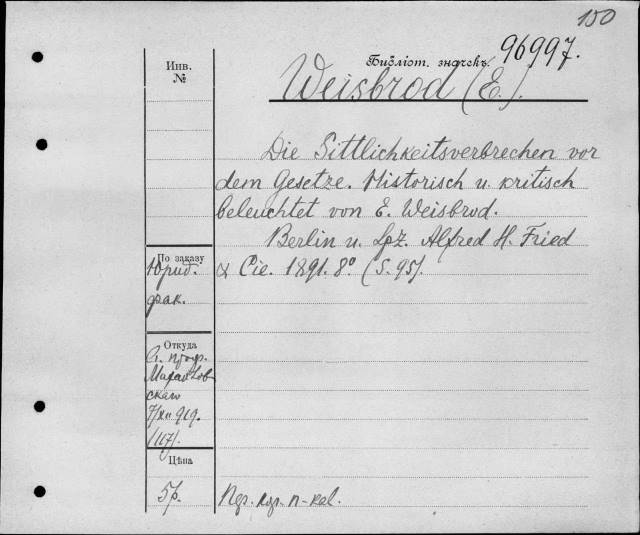 150
Библіот. значекъ 96997.
Инв.
№
Weisbrod (E.).
Die Sittlichkeitsverbrechen vor
dem Gesetze. Historisch u. kritisch
beleuchtet von E. Weisbrod.
Berlin u. Lpz. Alfred H. Fried
& Cie. 1891. 8° (S. 95).
По заказу
Юрид.
фак.
Откуда
проф.
Михайлов-
скаго
7/XII 919.
/117/.
Цѣна
5 р.